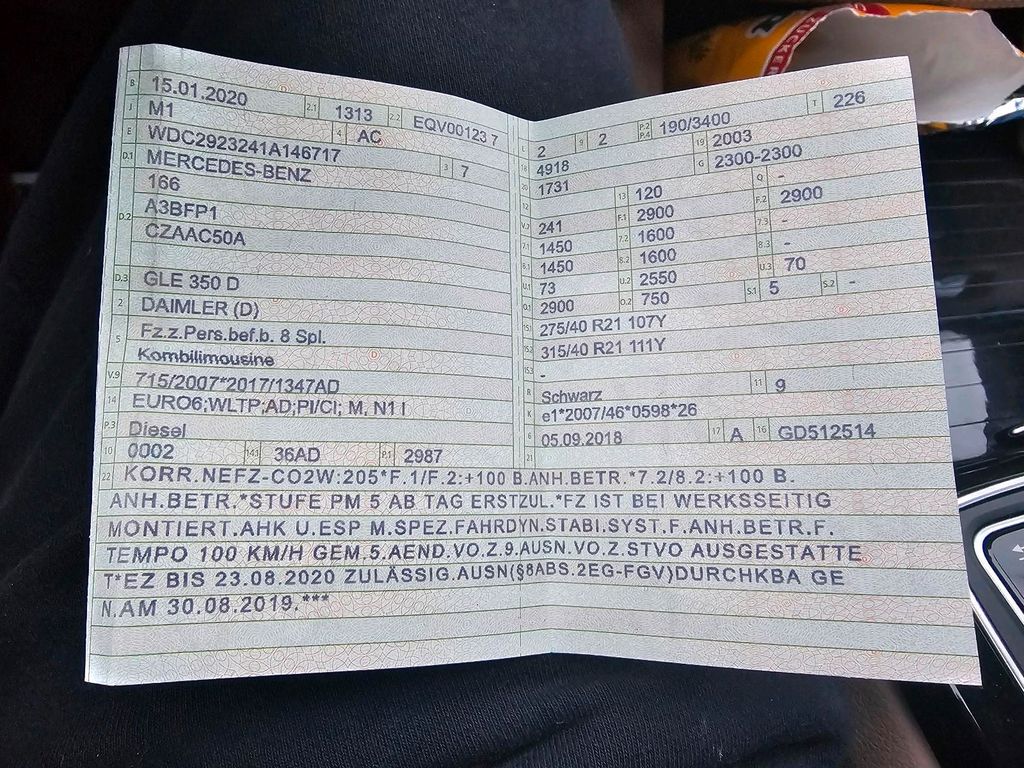 B 15.01.2020 2.1 1313 2.2 EQV00123 7
J M1 4 AC
E WDC2923241A146717 3 7
D.1 MERCEDES-BENZ
166
D.2 A3BFP1
CZAAC50A
D.3 GLE 350 D
2 DAIMLER (D)
5 Fz.z.Pers.bef.b. 8 Spl.
Kombilimousine
V.9 715/2007*2017/1347AD
14 EURO6;WLTP;AD;PI/CI; M, N1 I
P.3 Diesel
10 0002 14.1 36AD P.1 2987
L 2 9 2 P.2 P.4 190/3400 T 226
18 4918 19 2003
20 1731 G 2300-2300
12 13 120 Q -
V.7 241 F.1 2900 F.2 2900
7.1 1450 7.2 1600 7.3 -
8.1 1450 8.2 1600 8.3 -
U.1 73 U.2 2550 U.3 70
O.1 2900 O.2 750 S.1 5 S.2 -
15.1 275/40 R21 107Y
15.2 315/40 R21 111Y
15.3 -
R Schwarz 11 9
K e1*2007/46*0598*26
6 05.09.2018 17 A 16 GD512514
21
22 KORR.NEFZ-CO2W:205*F.1/F.2:+100 B.ANH.BETR.*7.2/8.2:+100 B.
ANH.BETR.*STUFE PM 5 AB TAG ERSTZUL.*FZ IST BEI WERKSSEITIG
MONTIERT.AHK U.ESP M.SPEZ.FAHRDYN.STABI.SYST.F.ANH.BETR.F.
TEMPO 100 KM/H GEM.5.AEND.VO.Z.9.AUSN.VO.Z.STVO AUSGESTATTE
T*EZ BIS 23.08.2020 ZULÄSSIG.AUSN(§8ABS.2EG-FGV)DURCHKBA GE
N.AM 30.08.2019.***
ZUCKER